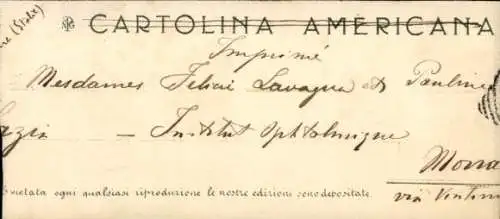 CARTOLINA AMERICANA
Imprimé
Mesdames Felicie Lavagna et Pauline
Institut Ophtalmique
Mona
vietata ogni qualsiasi riproduzione le nostre edizioni sono depositate.
via